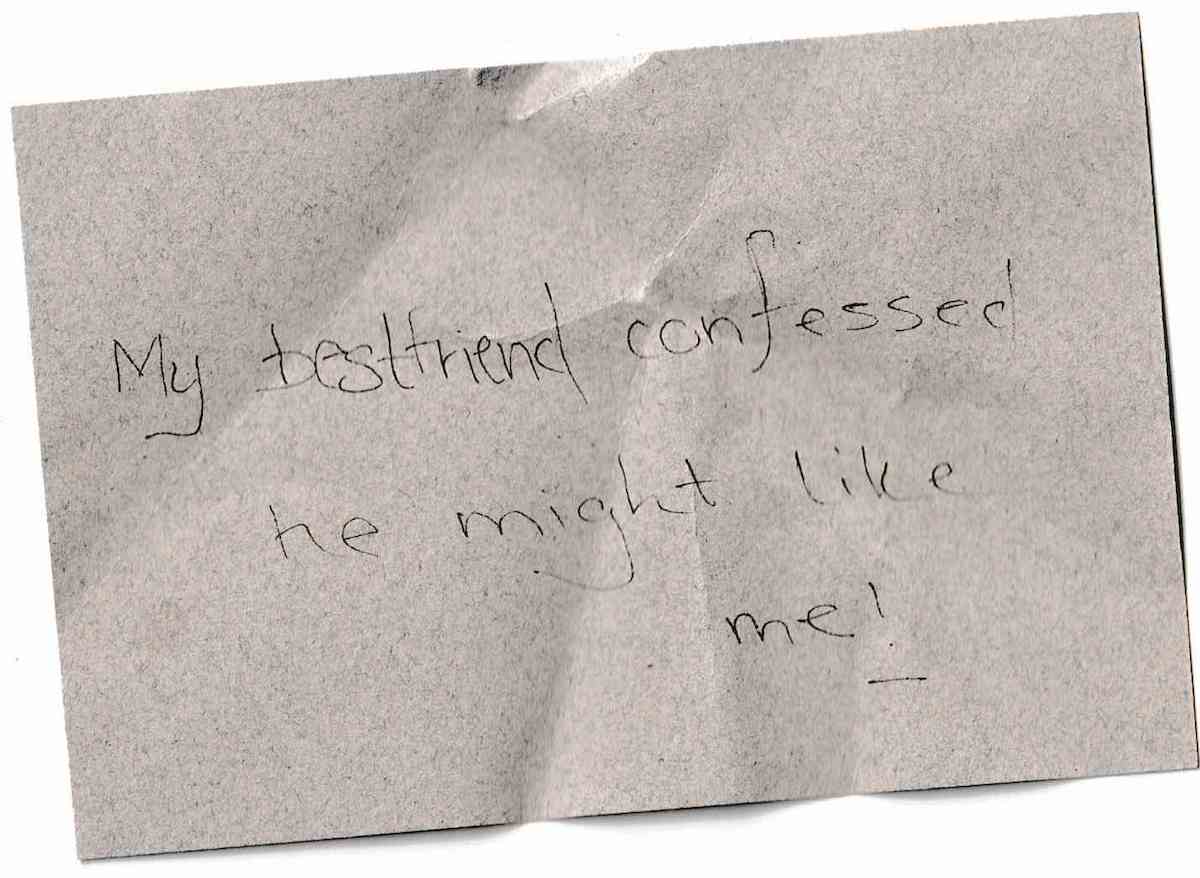 My bestfriend confessed
he might like
me!